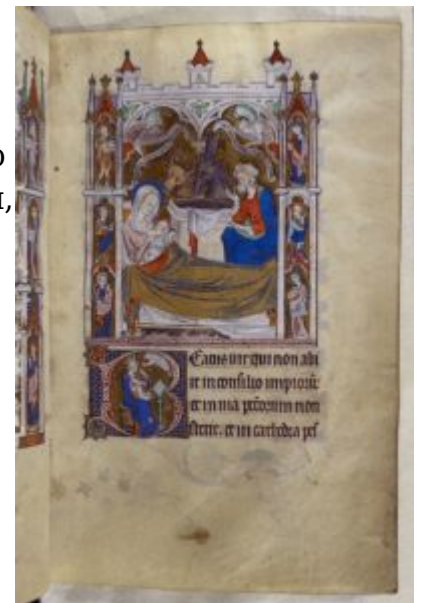 о
,
Eatus uir qui non abi
it in consilio impiorū
et in uia pctorum non
stetit. et in cathedra pes